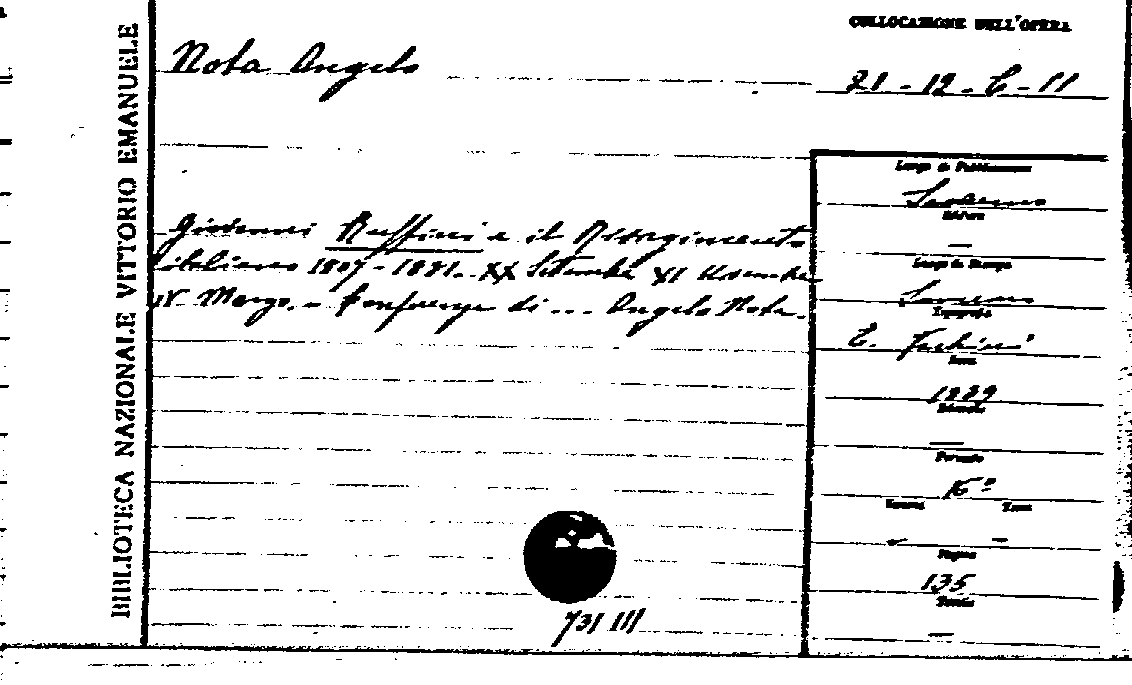 BIBLIOTECA NAZIONALE VITTORIO EMANUELE
COLLOCAZIONE DELL'OPERA
Nota Angelo
21 - 12 - C - 11
Giovanni Ruffini e il Risorgimento
italiano 1807 - 1881. XX Settembre XI Novembre
IV Marzo. - Conferenze di ... Angelo Nota.
Luogo di Pubblicazione
Sanremo
Editore
—
Luogo di Stampa
Sanremo
Tipografia
Data
1899
Edizione
—
Formato
16º
Volumi
Tomi
—
Pagine
135
Tavole
—
731 III